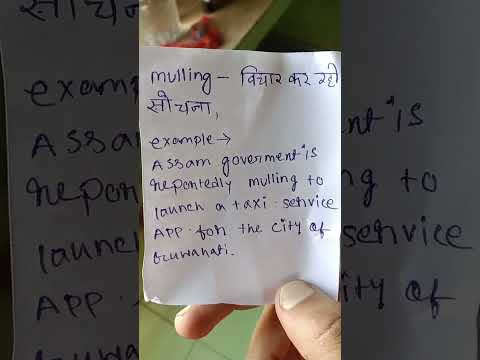 mulling - विचार कर रहे
सोचना,
example →
Assam goverment is
repontedly mulling to
launch a taxi service
App. for the city of
Guwahati.